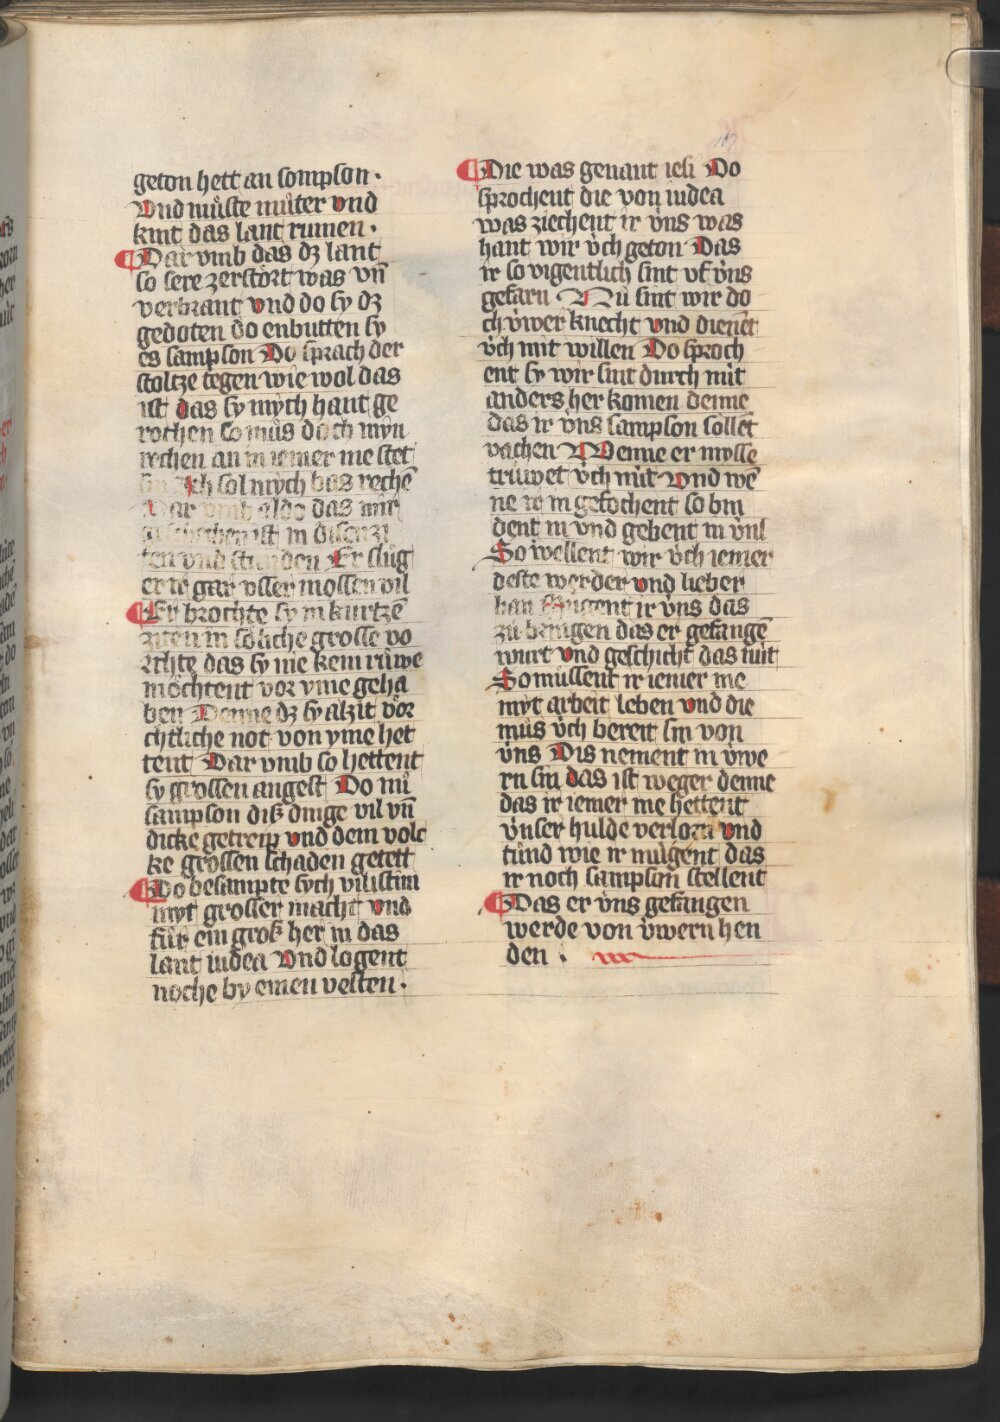 geton hett an sompson·
Vnd muͤste muͦter vnd
kint das lant rumen·
¶Dar vmb das dz lant
so sere zerstoͤrt was vn̄
verbrant vnd do sy dz
gedoten do enbutten sy
es sampson Do sprach der
stoltze tegen wie wol das
ist das sy mych hant ge
rochen so muͦs doch myn
rechen an in iemer me stet
sin Ich sol mych bas rechē
Dar vmb also das mir
geschechen ist in disen zi
ten vnd stunden Er sluͦg
er ir gar vsser mossen vil
¶Er brochte sy in kurtzē
ziten in soͤliche grosse vo
rchte das sy nie kein ruͦwe
moͤchtent vor yme geha
ben Denne dz sy alzit vor
chtliche not von yme het
tent Dar vmb so hettent
sy grossen angest Do nuͦ
sampson diß dinge vil vn̄
dicke getreip vnd dem volc
ke grossen schaden getett
¶Do besampte sych vilistim
myt grosser macht vnd
fuͤr ein groß her in das
lant iudea Vnd logent
noche by einen vesten·
107
¶Die was genant iesi Do
sprochent die von iudea
was ziechent ir vͤns was
hant wir vͤch geton Das
ir so vigentlich sint vf vͤns
gefarn Nuͦ sint wir do
ch vͤwer knecht vnd dienēt
vͤch mit willen Do sproch
ent sy wir sint durch nuͤt
anders her komen denne
das ir vͤns sampson soͤllēt
vachen Wenne er mosse
truwet vͤch nuͤt Vnd wē
ne ir in gesochent so bin
dent in vnd gebent in vͤns
So wellent wir vͤch iemer
deste werder vnd lieber
han Muͤgent ir vͤns das
zuͦ bringen das er gefangē
wurt vnd geschicht das nuͤt
So muͤssent ir iemer me
myt arbeit leben vnd die
muͦs vͤch bereit sin von
vͤns Dis nement in vͤwe
rn sin das ist weger denne
das ir iemer me hettent
vͤnser hulde verlorn vnd
tuͦnd wie ir muͤgent das
ir noch sampson stellent
¶Das er vͤns gefangen
werde von vͤwern hen
den·